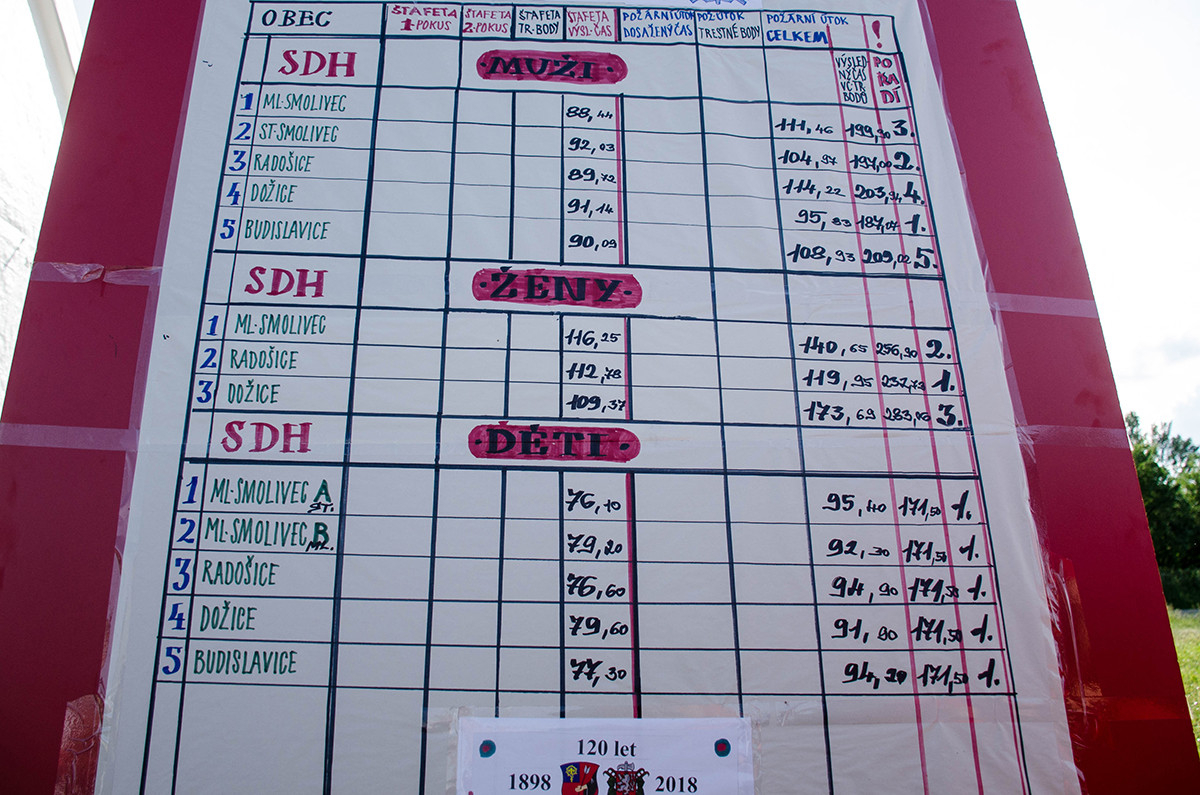 OBEC ŠTAFETA 1·POKUS ŠTAFETA 2·POKUS ŠTAFETA TR·BODY ŠTAFETA VÝSL·ČAS POŽÁRNÍ ÚTOK DOSAŽENÝ ČAS POŽ·ÚTOK TRESTNÉ BODY POŽÁRNÍ ÚTOK CELKEM !
VÝSLEDNÝ ČAS VČ·TR·BODŮ POŘADÍ
SDH ·MUŽI·
1 ML·SMOLIVEC 88,44 111,46 199,90 3.
2 ST·SMOLIVEC 92,03 104,97 197,00 2.
3 RADOŠICE 89,72 114,22 203,94 4.
4 DOŽICE 91,14 95,83 187,07 1.
5 BUDISLAVICE 90,09 108,93 209,02 5.
SDH ·ŽENY·
1 ML·SMOLIVEC 116,25 140,65 256,90 2.
2 RADOŠICE 112,78 119,95 232,73 1.
3 DOŽICE 109,37 173,69 283,06 3.
SDH ·DĚTI·
1 ML·SMOLIVEC A ST. 76,10 95,40 171,50 1.
2 ML·SMOLIVEC B ML. 79,20 92,30 171,50 1.
3 RADOŠICE 76,60 94,90 171,50 1.
4 DOŽICE 79,60 91,90 171,50 1.
5 BUDISLAVICE 77,30 94,20 171,50 1.
120 let
1898 2018